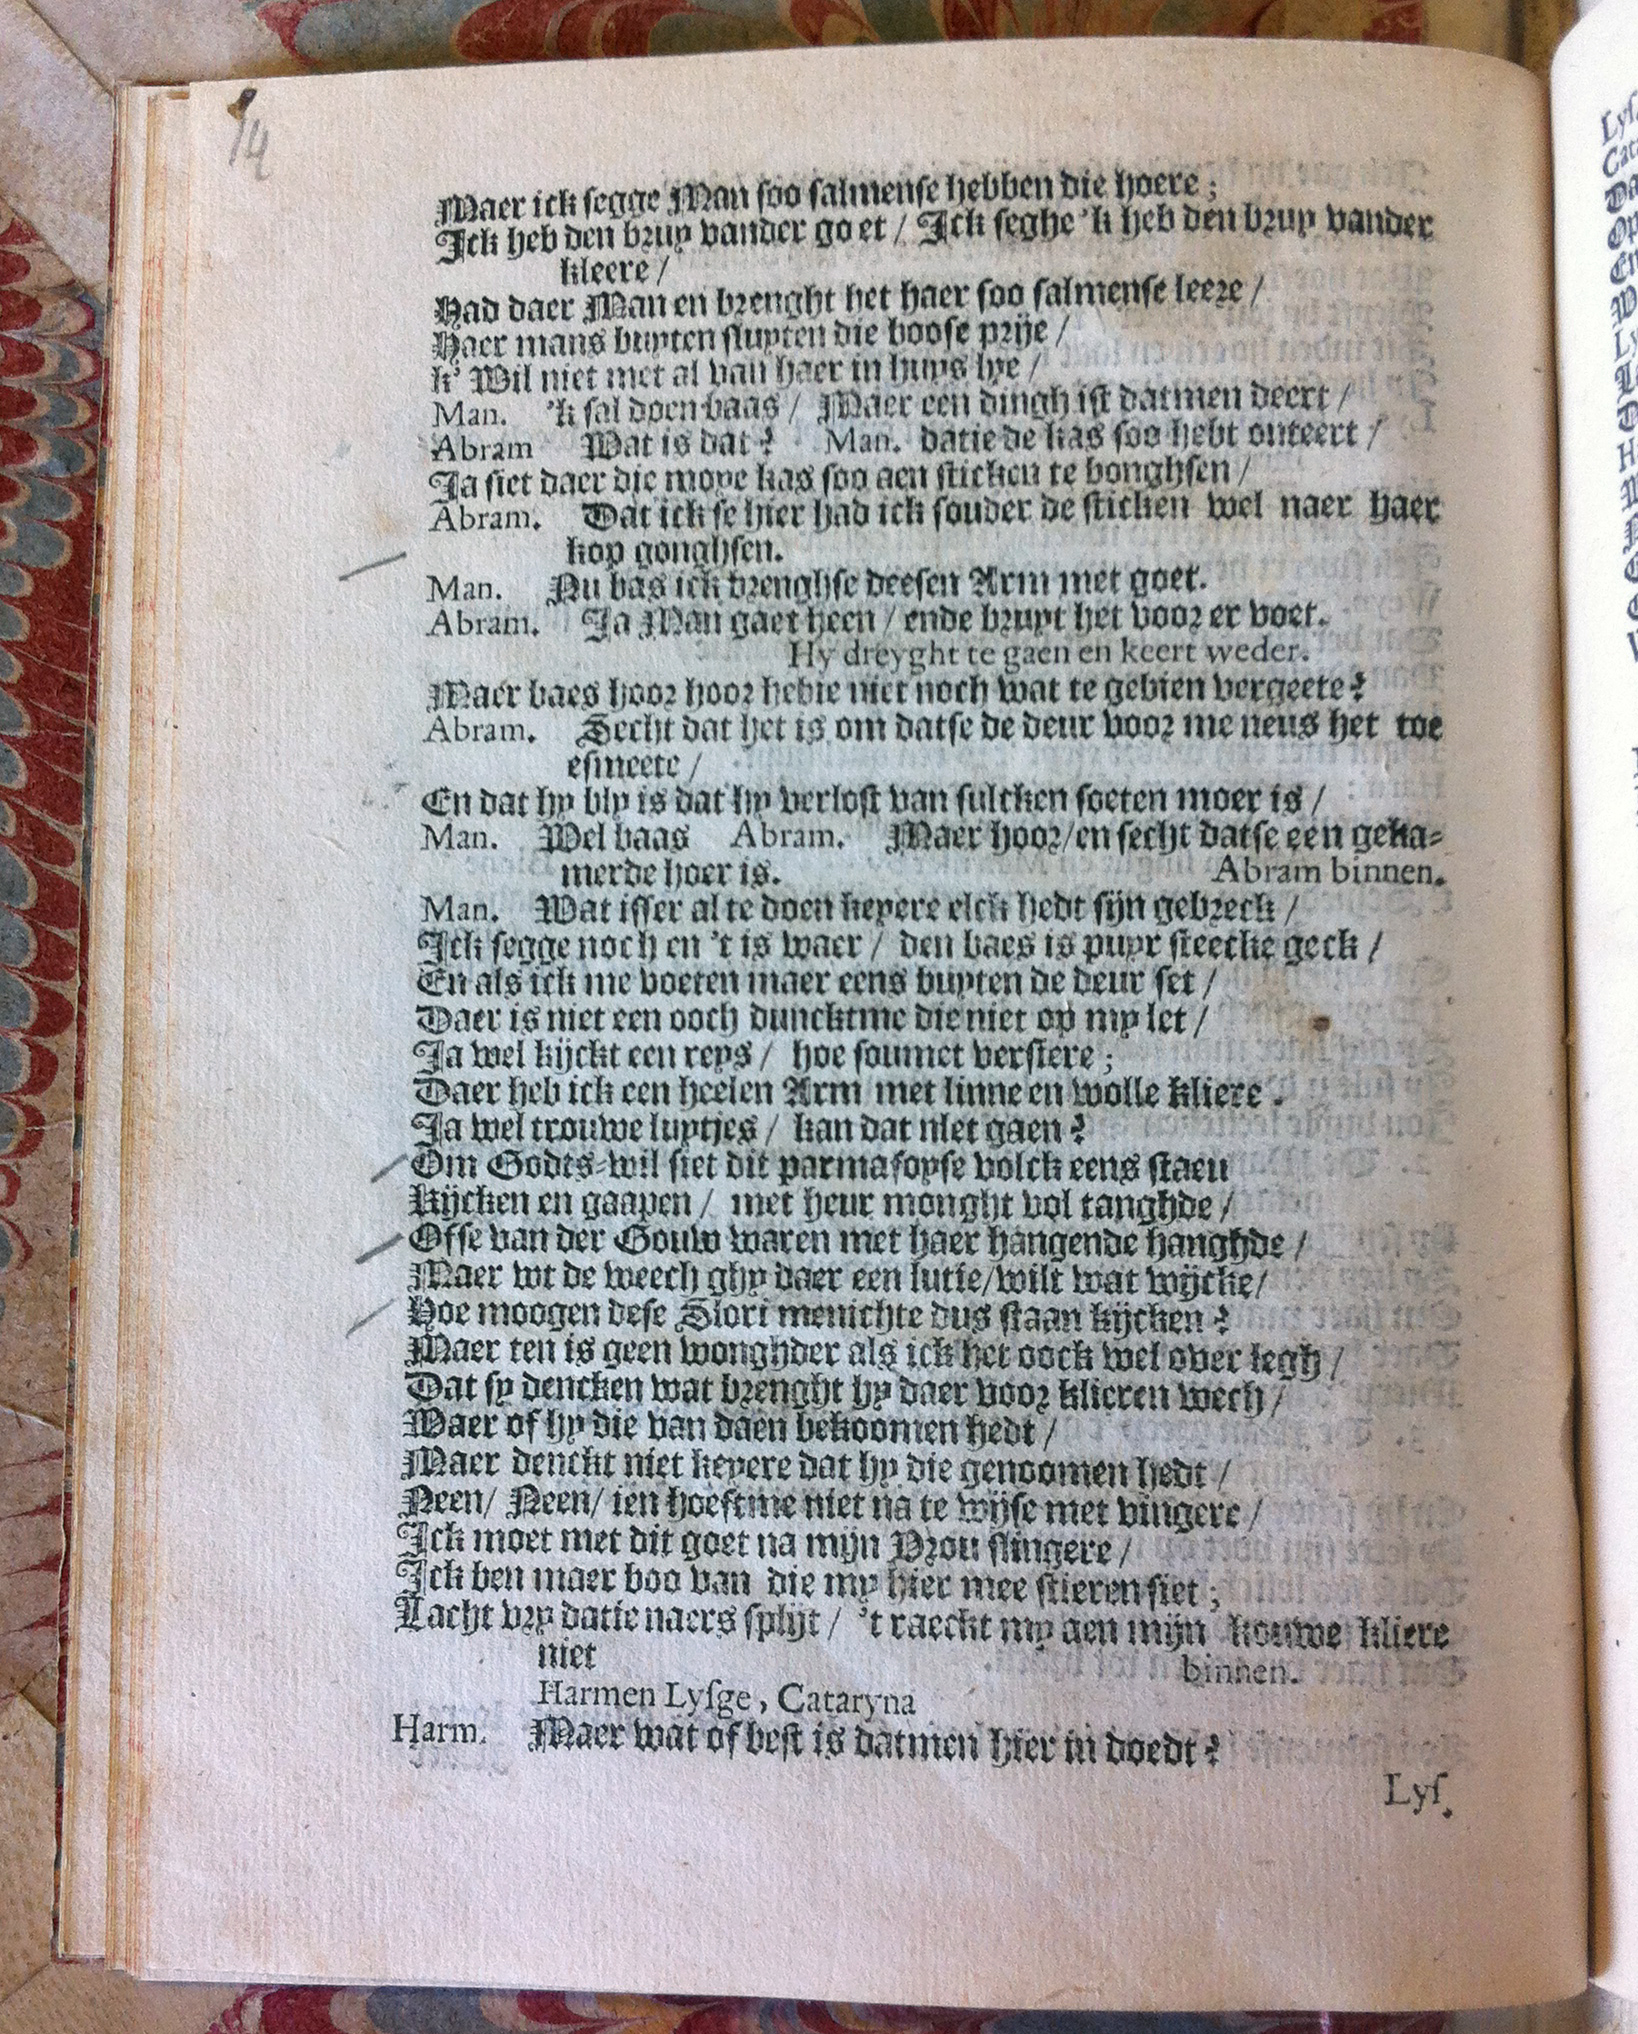 14
Maer ick segge Man soo salmense hebben die hoere;
Ick heb den bruy vander go et / Ick seghe 'k heb den bruy vander
kleere /
Had daer Man en brenght het haer soo salmense leere /
Haer mans buyten sluyten die boose prije /
k' Wil niet met al van haer in huys lye /
Man. 'k sal doen baas / Maer een dingh ist datmen deert /
Abram Wat is dat? Man. datie de kas soo hebt onteert /
Ja siet daer die moye kas soo aen sticken te bonghsen /
Abram. Dat ick se hier had ick souder de sticken wel naer haer
kop gonghsen.
Man. Nu bas ick brenghse deesen Arm met goet.
Abram. Ja Man gaet heen / ende bruyt het voor er voet.
Hy dreyght te gaen en keert weder.
Maer baes hoor hoor hebie niet noch wat te gebien vergeete?
Abram. Secht dat het is om datse de deur voor me neus het toe
esmeete /
En dat hy bly is dat hy verlost van sulcken soeten moer is /
Man. Wel baas Abram. Maer hoor/en secht datse een geka-
merde hoer is. Abram binnen.
Man. Wat isser al te doen keyere elck hedt sijn gebreck /
Ick segge noch en 't is waer / den baes is puyr steecke geck /
En als ick me voeten maer eens buyten de deur set /
Daer is niet een ooch duncktme die niet op my let /
Ja wel kijckt een reys / hoe soumet versiere;
Daer heb ick een heelen Arm met linne en wolle kliere.
Ja wel trouwe luytjes / kan dat niet gaen?
Om Godts-wil siet dit parmasoyse volck eens staen
Kijcken en gaapen / met heur monght vol tanghde /
Ofse van der Gouw waren met haer hangende hanghde /
Maer wt de weech ghy daer een lutie/wilt wat wijcke/
Hoe moogen dese Slori menichte dus staan kijcken?
Maer ten is geen wonghder als ick het oock wel over legh /
Dat sy dencken wat brenght hy daer voor klieren wech /
Waer of hy die van daen bekoomen hedt /
Maer denckt niet keyere dat hy die genoomen hedt /
Neen/ Neen/ ien hoeftme niet na te wijse met vingere /
Ick moet met dit goet na mijn Vrou slingere /
Ick ben maer boo van die my hier mee stieren siet;
Lacht vry datie naers splijt / 't raeckt my aen mijn kouwe kliere
niet binnen.
Harmen Lysge, Cataryna
Harm. Maer wat of best is datmen hier in doedt?
Lys.